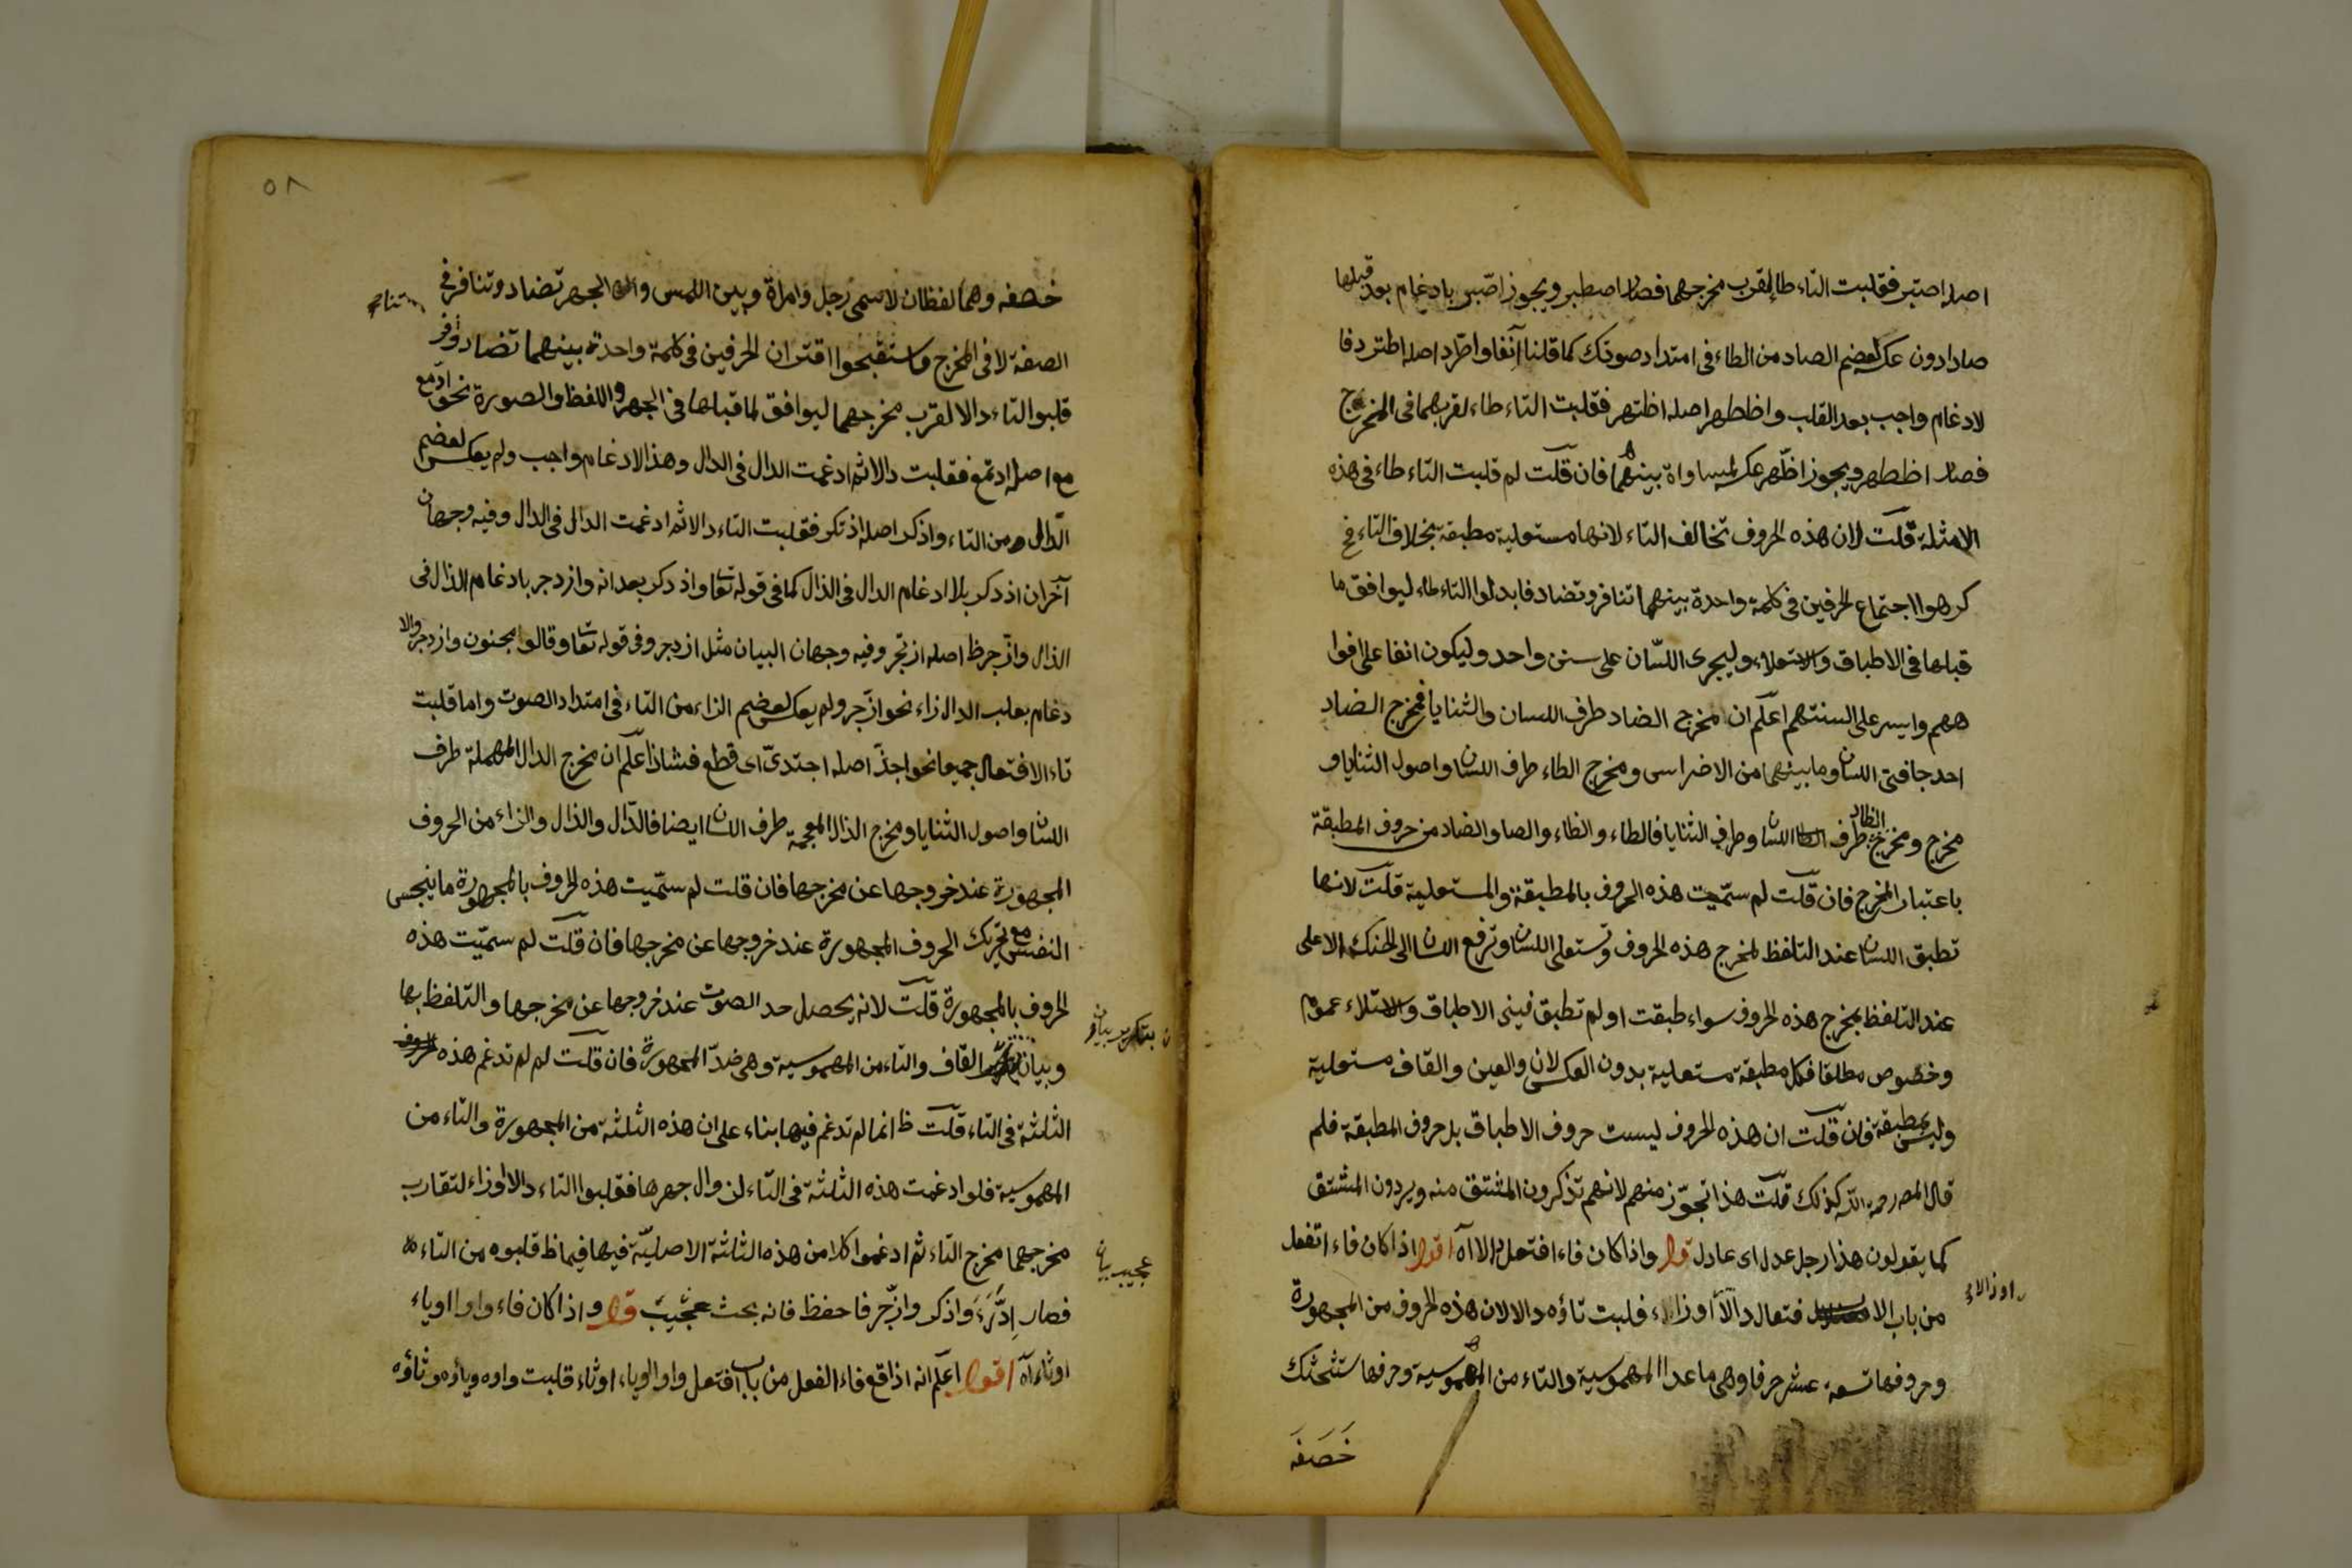 اصله اصتبر فقلبت التاء طا لقرب مخرجهما فصار اصطبر ويجوز اصّبر بادغام بعد قبلها
صادا دون عكسه لعضم الصاد من الطاء فى امتداد صوتك كما قلنا آنفا واطّرد اصله اطترد فا
لادغام واجب بعد القلب واظطهر اصله اظتهر فقلبت التاء طاء لقربهما فى المخرج
فصار اظطهر ويجوز اظّهر عكسه لمساواة بينهما فان قلت لم قلبت التاء طاء فى هذه
الامثلة قلت لان هذه الحروف تخالف التاء لانها مستعلية مطبقة بخلاف التاء فح
كرهوا اجتماع الحرفين فى كلمة واحدة بينهما تنافر وتضاد فابدلوا التاء طاء ليوافق ما
قبلها فى الاطباق والاستعلاء وليجرى اللسّان على سنن واحد وليكون انفا على افوا
ههم وايسر على السنتهم اعلم ان مخرج الضاد طرف اللسان والثنايا فمخرج الضاد
احد حافتى اللسان وما بينهما من الاضراس ومخرج الطاء طرف اللسان واصول الثنايا و
مخرج ومخرج الظاد طرف اللسان وطرف الثنايا فالطاء والظاء والصا والضاد من حروف المطبقة
باعتبار المخرج فان قلت لم سمّيت هذه الحروف بالمطبقة والمستعلية قلت لانها
تطبق اللسان عند التلفظ لمخرج هذه الحروف وتستعلى اللسان وترفع اللسان الى الحنك الاعلى
عند التلفظ بمخرج هذه الحروف سواء طبقت او لم تطبق فبنى الاطباق والاستلاء عموم
وخصوص مطلقا فكل مطبقة مستعلية بدون العكس لان والعين والقاف مستعلية
وليس بمطبقة فان قلت ان هذه الحروف ليست حروف الاطباق بل حروف المطبقة فلم
قال المصر رحمه الله كذلك قلت هذا تجوّز منهم لانهم تذكرون المشتق منه ويردون المشتق
كما يقولون هذا رجل عدل اى عادل قوله واذا كان فاء افتعل دالا اه اقول اذا كان فاء اتفعل
من باب الا فتعال دالاً او زاء قلبت تاؤه دالا لان هذه الحروف من المجهورة
او ذالا او
وحروفها تسعة عشر حرفا وهى ماعدا المهموسية والتاء من المهموسية وحرفها ستشحثك
خَصَفَه
٥٨
خصفه وهما لفظان لاسمى رجل وامراة وبين اللمس والجهر تضاد وتنافر فى
الصفة لا فى المخرج واستقبحوا اقتران الحرفين فى كلمة واحدة بينهما تضاد وافر
قلبوا التاء دالا لقرب مخرجهما ليوافق لما قبلها فى الجهر واللفظ والصورة نحو ادّمع
مع اصله ادتمع فقلبت دالا ثم ادغمت الدال فى الدال وهذا الادغام واجب ولم يعكس لعضم
الدّال من التاء واذكر اصله اذتكر فقلبت التاء دالا ثم ادغمت الدال فى الدال وفيه وجهان
آخران اذدكر بلا ادغام الدال فى الذال كما فى قوله تعا واذدكر بعد انه وازدجر بادغام الذال فى
الذال وازّجر ظ اصله ازتجر وفيه وجهان البيان مثل ازدجر وفى قوله تعا وقالوا مجنون وازدجر والا
دغام بقلب الدال زاء نحو ازّجر ولم يعكس لعضم الزاء من التاء فى امتداد الصوت واما قلبت
تاء الافتعال جيما نحو اجدّ اصله اجتدىّ اى قطع فشاذ اعلم ان مخرج الدال المهملة طرف
اللسان واصول الثنايا ومخرج الذال المعجمة طرف اللسان ايضا فالدّال والذال والزاء من الحروف
المجهورة عند خروجها عن مخرجها فان قلت لم سمّيت هذه الحروف بالمجهورة ما ينجس
النفس مع تحريك الحروف المجهورة عند خروجها عن مخرجها فان قلت لم سمّيت هذه
الحروف بالمجهورة قلت لانه يحصل حد الصوت عند خروجها عن مخرجها والتلفظ بها
وبيان القاف والتاء من المهموسية وهى ضدّ المجهورة فان قلت لم لم تدغم هذه الحروف
الثلثة فى التاء قلت ظ انما لم تدغم فيها بناء على ان هذه الثلثة من المجهورة والتاء من
المهموسية فلو ادغمت هذه الثلثة فى التاء لزوال جهرها فقلبوا التاء دالا او زاء لتقارب
مخرجهما مخرج التاء ثم ادغموا كلا من هذه الثلثة الاصليّة فيها فيما ظ قلبوه من التاء
عجيب بيان
فصار اِدَّرَءَ واذكر وازّجر فاحفظ فانه بحث عجيب قوله واذا كان فاء واوا اوياء
اوثاء آه اقول اعلم انه اذا وقع فاء الفعل من باب افتعل واو اوياء اوثاء قلبت واوه وياؤه وثاؤه